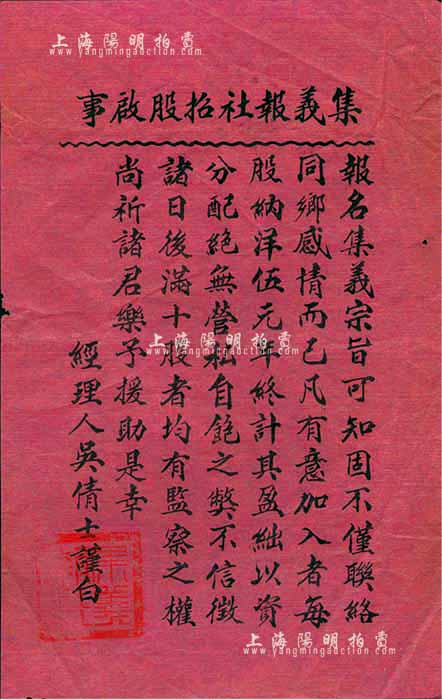 上海陽明拍賣
www.yangmingauction.com
集義報社招股啟事
報名集義宗旨可知固不僅聯絡
同鄉感情而已凡有意加入者每
股納洋伍元年終計其盈絀以資
分配絕無營私自飽之獘不信徵
諸日後滿十股者均有監察之權
尚祈諸君樂予援助是幸
經理人吳倩士謹白
上海陽明拍賣
www.yangmingauction.com
上海陽明拍賣
www.yangmingauction.com